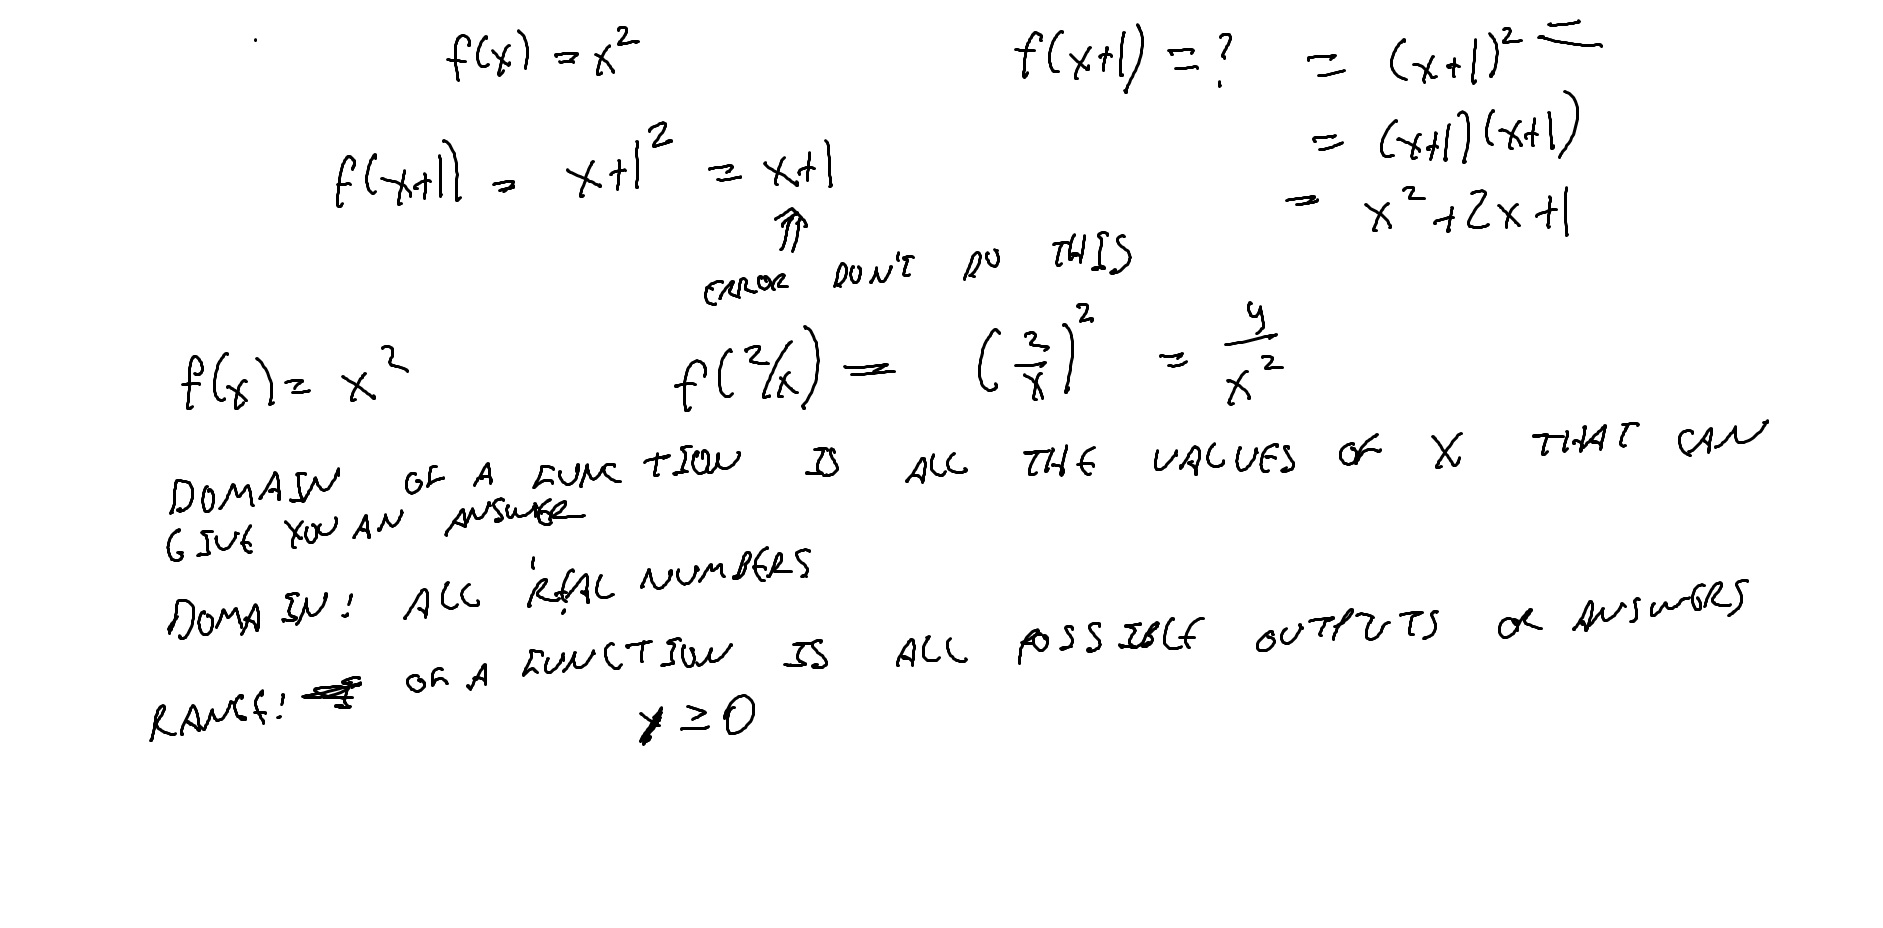 f(x) = x²
f(x+1) = ? = (x+1)² =
= (x+1)(x+1)
= x²+2x+1
f(x+1) = x+1² = x+1
⇑
ERROR DON'T DO THIS
f(x) = x² f(2/x) = (2/x)² = 4/x²
DOMAIN OF A FUNCTION IS ALL THE VALUES OF X THAT CAN
GIVE YOU AN ANSWER
DOMAIN: ALL REAL NUMBERS
RANGE: OF A FUNCTION IS ALL POSSIBLE OUTPUTS OR ANSWERS
y ≥ 0